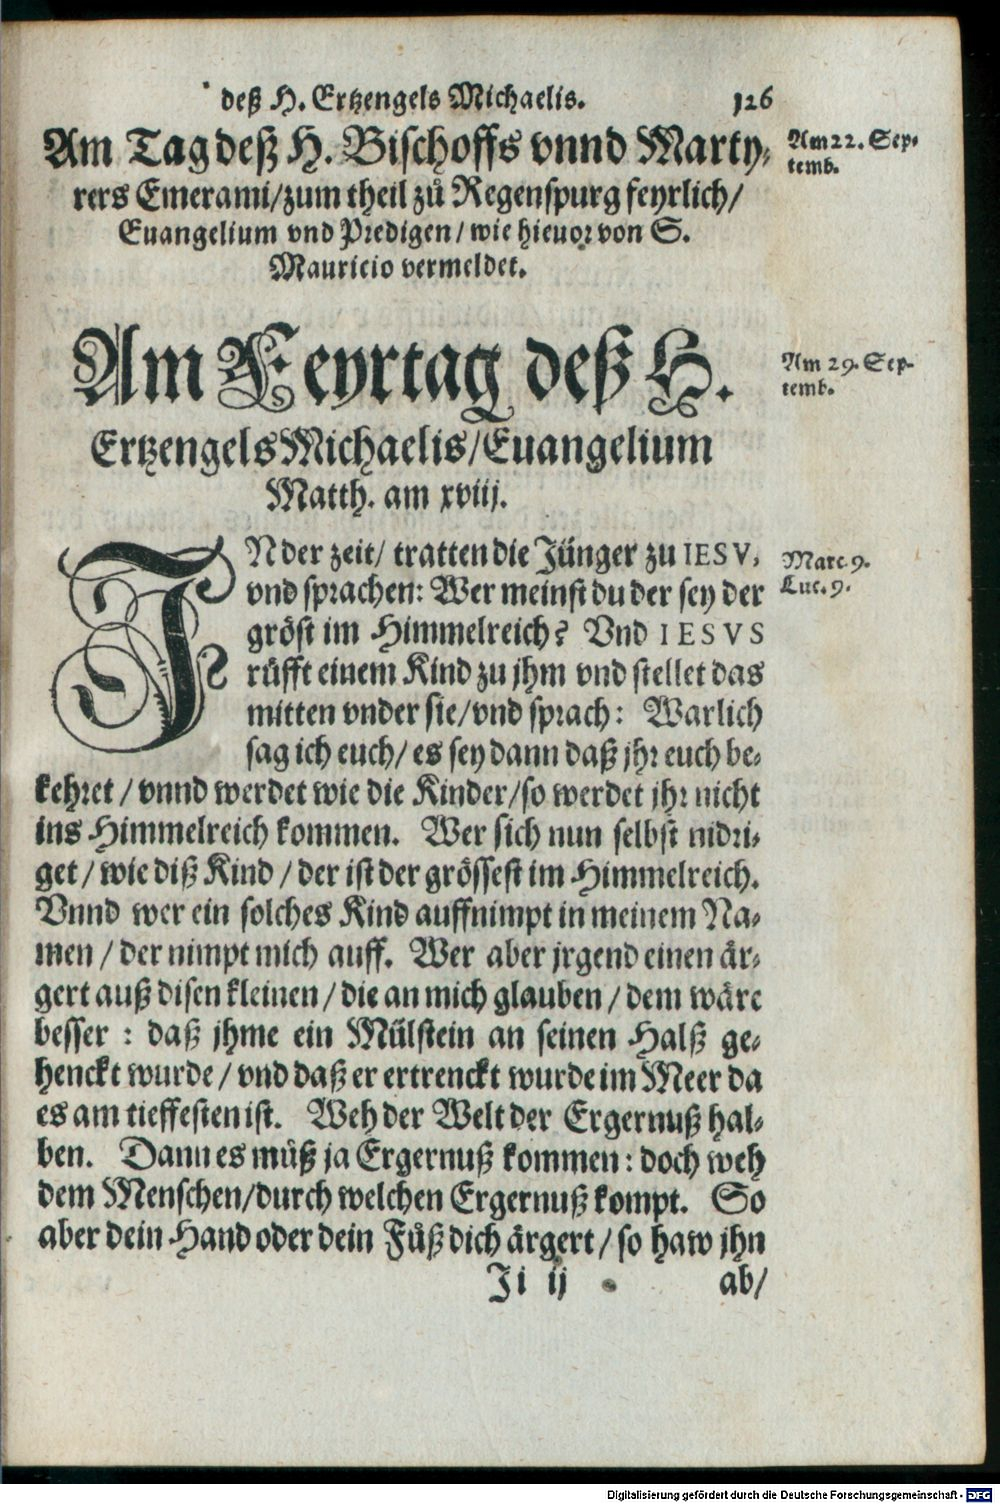 deß H. Ertzengels Michaelis. 126
Am Tag deß H. Bischoffs vnnd Marty-
rers Emerami/zum theil zů Regenspurg feyrlich/
Euangelium vnd Predigen/wie hieuor von S.
Mauricio vermeldet.
Am 22. Sep-
temb.
Am Feyrtag deß H.
Ertzengels Michaelis/Euangelium
Matth. am xviij.
Am 29. Sep-
temb.
JN der zeit/ tratten die Jünger zu IESV,
vnd sprachen: Wer meinst du der sey der
gröst im Himmelreich? Vnd IESVS
rüfft einem Kind zu jhm vnd stellet das
mitten vnder sie/vnd sprach: Warlich
sag ich euch/ es sey dann daß jhr euch be-
kehret/vnnd werdet wie die Kinder/so werdet jhr nicht
ins Himmelreich kommen. Wer sich nun selbst nidri-
get/wie diß Kind/der ist der grössest im Himmelreich.
Vnnd wer ein solches Kind auffnimpt in meinem Na-
men/der nimpt mich auff. Wer aber jrgend einen är-
gert auß disen kleinen/die an mich glauben/dem wäre
besser: daß jhme ein Mülstein an seinen Halß ge-
henckt wurde/vnd daß er ertrenckt wurde im Meer da
es am tieffesten ist. Weh der Welt der Ergernuß hal-
ben. Dann es müß ja Ergernuß kommen: doch weh
dem Menschen/durch welchen Ergernuß kompt. So
aber dein Hand oder dein Fůß dich ärgert/so haw jhn
Marc. 9.
Luc. 9.
Ji ij ab/
Digitalisierung gefördert durch die Deutsche Forschungsgemeinschaft - DFG